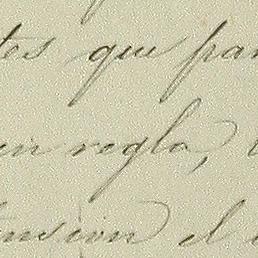 tes que par
en regla,
tension el